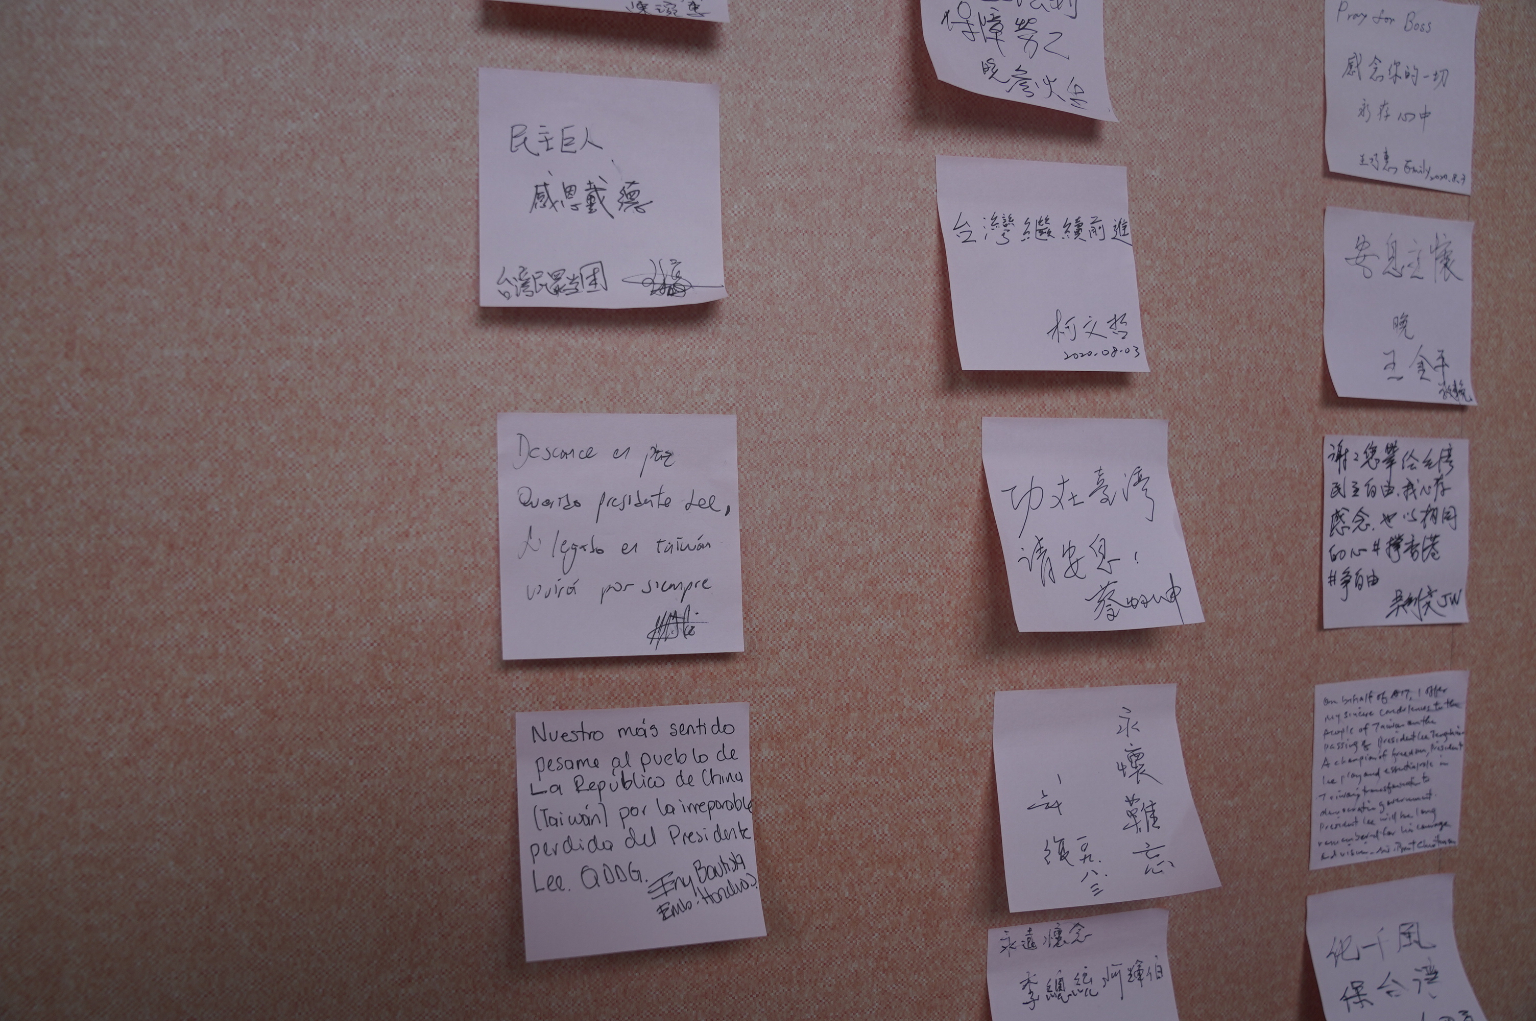 保障勞工
晚
民主巨人
感恩戴德
台灣民眾黨團
Descanse en paz
Querido presidente Lee,
legado en Taiwán
vivirá por siempre
Nuestro más sentido
pesame al pueblo de
La República de China
(Taiwán) por la irreparable
perdida del Presidente
Lee. QDDG.
Bautista
Emb. Honduras
台灣繼續前進
柯文哲
2020.08.03
功在臺灣
請安息!
蔡
永懷難忘
八.三
永遠懷念
李總統 阿輝伯
Pray for Boss
感念你的一切
永存心中
Emily 2020.8.3
安息主懷
晚
王金平
謝謝您帶給台灣
民主自由,我心存
感念,也以相同
的心#撐香港
#爭自由
JW
On behalf of AIT, I offer
my sincere condolences to the
people of Taiwan on the
passing of President Lee Teng-hui.
A champion of freedom, President
Lee played an essential role in
Taiwan's transformation to
democratic government.
President Lee will be long
remembered for his courage
and vision.
化一千風
保台灣